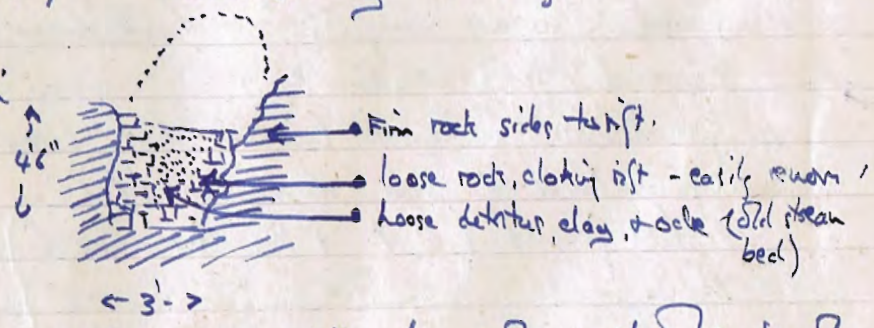 Firm rock sides to rift.
4'6"
loose rock, choking rift - easily
Loose detritus, clay, & rocks (old stream
bed)
← 3' →